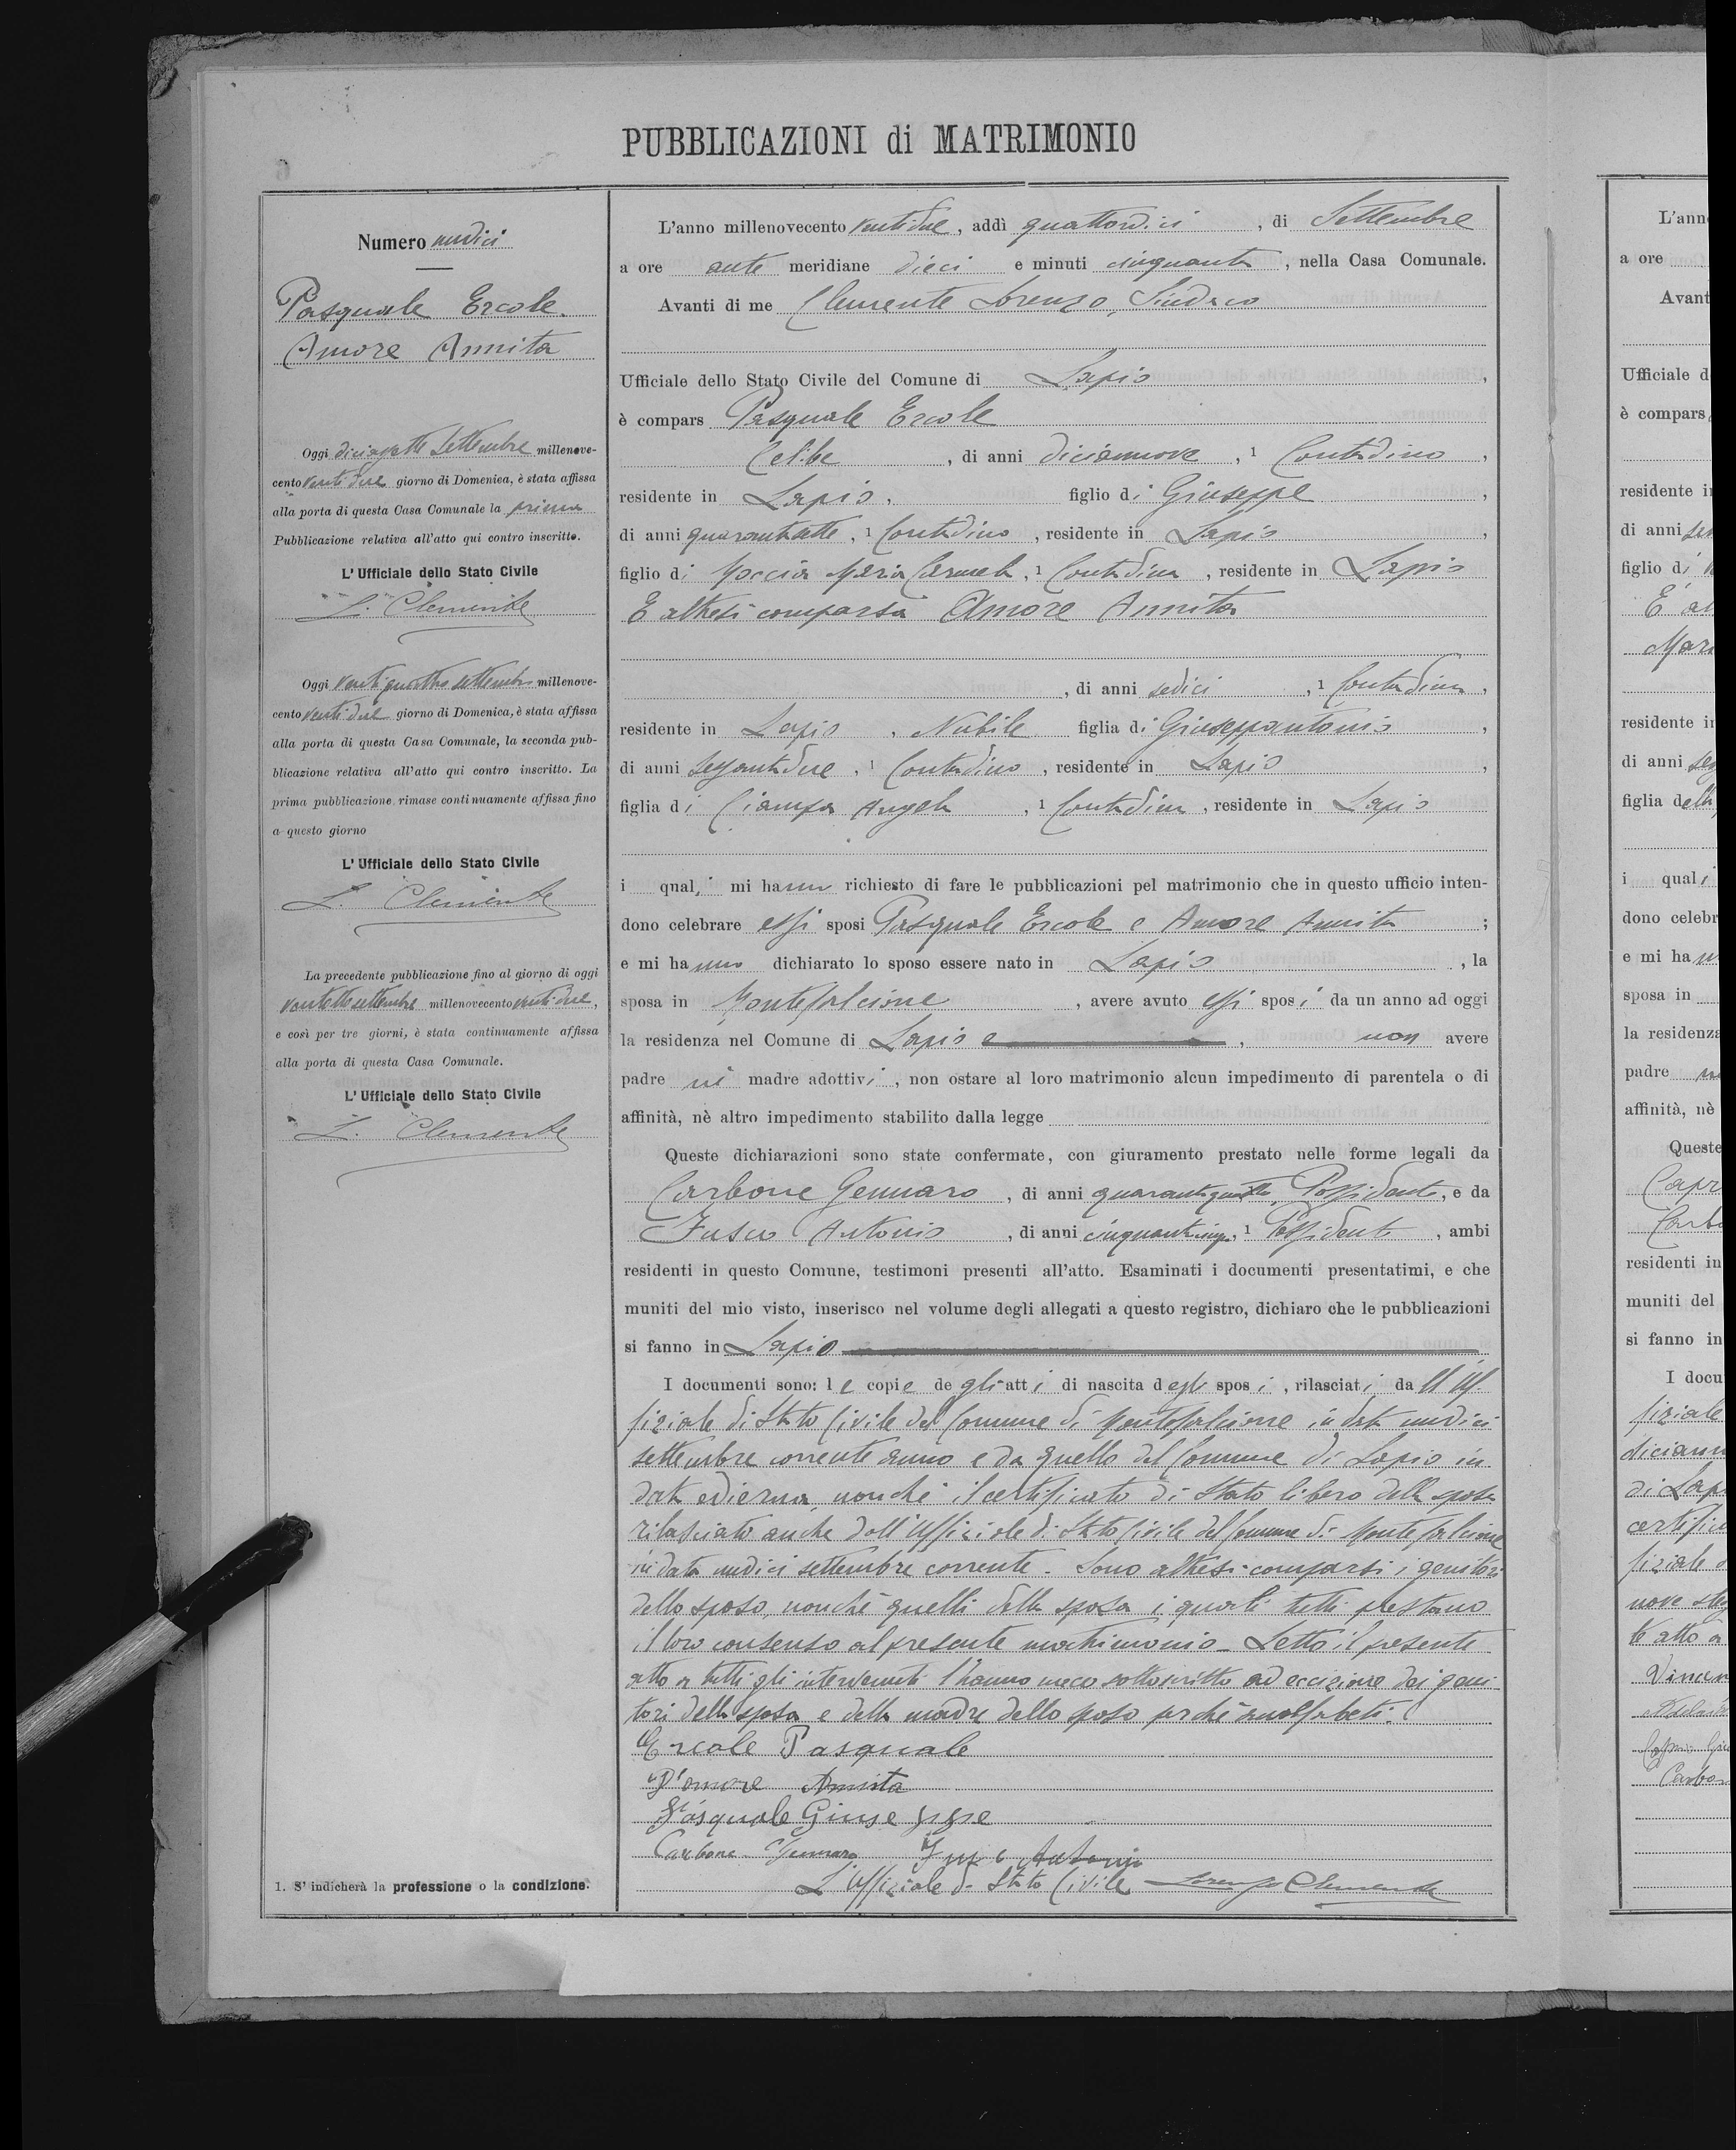 PUBBLICAZIONI di MATRIMONIO
Numero undici
Pasquale Ercole
Amore Annita
Oggi diciasette Settembre millenove-
cento venti due giorno di Domenica, è stata affissa
alla porta di questa Casa Comunale la prima
Pubblicazione relativa all'atto qui contro inscritto.
L'Ufficiale dello Stato Civile
L. Clemente
Oggi ventiquattro settembre millenove-
cento venti due giorno di Domenica, è stata affissa
alla porta di questa Casa Comunale, la seconda pub-
blicazione relativa all'atto qui contro inscritto. La
prima pubblicazione rimase continuamente affissa fino
a questo giorno
L'Ufficiale dello Stato Civile
L. Clemente
La precedente pubblicazione fino al giorno di oggi
settembre millenovecento venti due,
e così per tre giorni, è stata continuamente affissa
alla porta di questa Casa Comunale.
L'Ufficiale dello Stato Civile
L. Clemente
1. S'indicherà la professione o la condizione.
L'anno millenovecento ventidue, addì quattordici, di Settembre
a ore ante meridiane dieci e minuti cinquanta, nella Casa Comunale.
Avanti di me Clemente Lorenzo, Sindaco
Ufficiale dello Stato Civile del Comune di Lapio,
è compars Pasquale Ercole
Celibe, di anni diciannove, 1 Contadino,
residente in Lapio, figlio di Giuseppe,
di anni, 1 Contadino, residente in Lapio,
figlio di Moccia Maria Carmela, 1 Contadina, residente in Lapio
E altresì comparsa Amore Annita
, di anni sedici, 1 Contadina,
residente in Lapio, Nubile figlia di Giuseppantonio,
di anni sessantadue, 1 Contadino, residente in Lapio,
figlia di Ciampa Angela, 1 Contadina, residente in Lapio
i quali mi hanno richiesto di fare le pubblicazioni pel matrimonio che in questo ufficio inten-
dono celebrare essi sposi Pasquale Ercole e Amore Annita;
e mi hanno dichiarato lo sposo essere nato in Lapio, la
sposa in Montefalcione, avere avuto essi sposi da un anno ad oggi
la residenza nel Comune di Lapio e, non avere
padre nè madre adottivi, non ostare al loro matrimonio alcun impedimento di parentela o di
affinità, nè altro impedimento stabilito dalla legge
Queste dichiarazioni sono state confermate, con giuramento prestato nelle forme legali da
Carbone Gennaro, di anni quarantaquattro, Possidente, e da
Fusco Antonio, di anni cinquantacinque, 1 Possidente, ambi
residenti in questo Comune, testimoni presenti all'atto. Esaminati i documenti presentatimi, e che
muniti del mio visto, inserisco nel volume degli allegati a questo registro, dichiaro che le pubblicazioni
si fanno in Lapio
I documenti sono: le copie degli atti di nascita degli sposi, rilasciati dall'Uf-
fiziale di Stato Civile del Comune di Montefalcione in data undici
settembre corrente anno e da quello del Comune di Lapio in
data odierna, nonchè il certificato di Stato libero della sposa
rilasciato anche dall'Uffiziale di Stato Civile del Comune di Montefalcione
in data undici settembre corrente. Sono altresì comparsi i genitori
dello sposo, nonchè quelli della sposa i quali tutti prestano
il loro consenso al presente matrimonio. Letto il presente
atto a tutti gli intervenuti l'hanno meco sottoscritto ad eccezione dei geni-
tori della sposa e della madre dello sposo perchè analfabeti.
Ercole Pasquale
D'amore Annita
Pasquale Giuseppe
Carbone Gennaro Fusco Antonio
L'Uffiziale di Stato Civile Lorenzo Clemente
L'ann
a ore
Avant
Ufficiale d
è compars
residente i
di anni
figlio di
E' al
Mari
residente i
di anni
figlia della
i quali
dono celebr
e mi ha
sposa in
la residenza
padre
affinità, nè
Queste
residenti in
muniti del
si fanno in
I docu
fiziale
diciann
di Lap
certific
fiziale